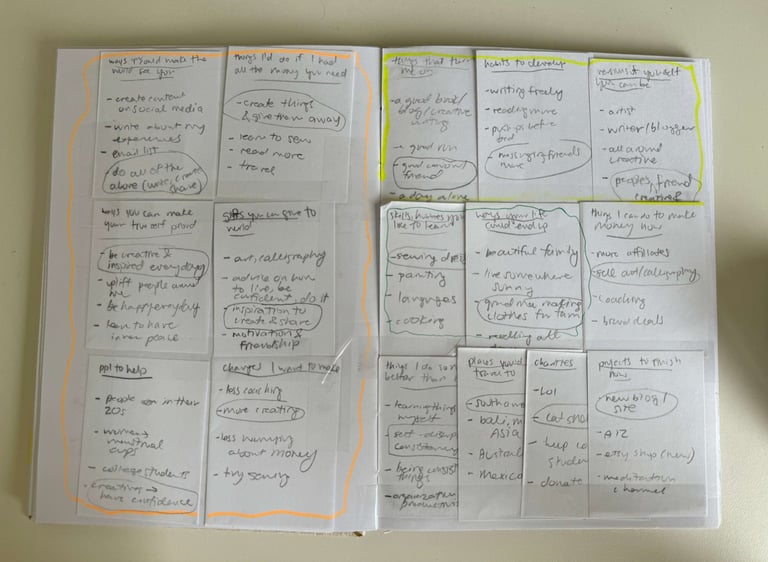 ways I could make the
world see you
- create content
on social media
- write about my
experiences
- email list
- do all of the
above (write, create,
share)
things I'd do if I had
all the money you need
- create things
& give them away
- learn to sew
- read more
- travel
things that turn
me on
- a good book/
blog/creative
writing
- a good run
- good convo w/
friend
- a day alone
habits to develop
- writing freely
- reading more
- push ups before
bed
- messaging friends
more
versions of yourself
you can be
- artist
- writer/blogger
- all around
creative
- peoples, friend
creative
ways you can make
your true self proud
- be creative &
inspired everyday
- uplift people around
me
- be happy everyday
- learn to have
inner peace
gifts you can give to
world
- art, calligraphy
- advice on how
to live, be
confident, do it
- inspiration to
create & share
- motivation &
friendship
skills, hobbies you'd
like to learn
- sewing
- painting
- languages
- cooking
ways your life
could end up
- beautiful family
- live somewhere
sunny
- grandma making
clothes for fam
- reselling all
things I can do to make
money now
- more affiliates
- sell art/calligraphy
- coaching
- brand deals
ppl to help
- people in their
20s
- women →
menstrual
cups
- college students
- creating →
have confidence
changes I want to make
- less coaching
- more creating
- less worrying
about money
- try sewing
things I do
better than
- learning things
myself
- self-
consistency
- being consist
things
- organization
productivi
places you'd
travel to
- south am
- bali,
Asia
- Austral
- Mexico
charities
- LOI
- cat
- help co
studen
- donate
projects to finish
now
- new blog/
site
- A12
- etsy shop (new)
- meditation
channel